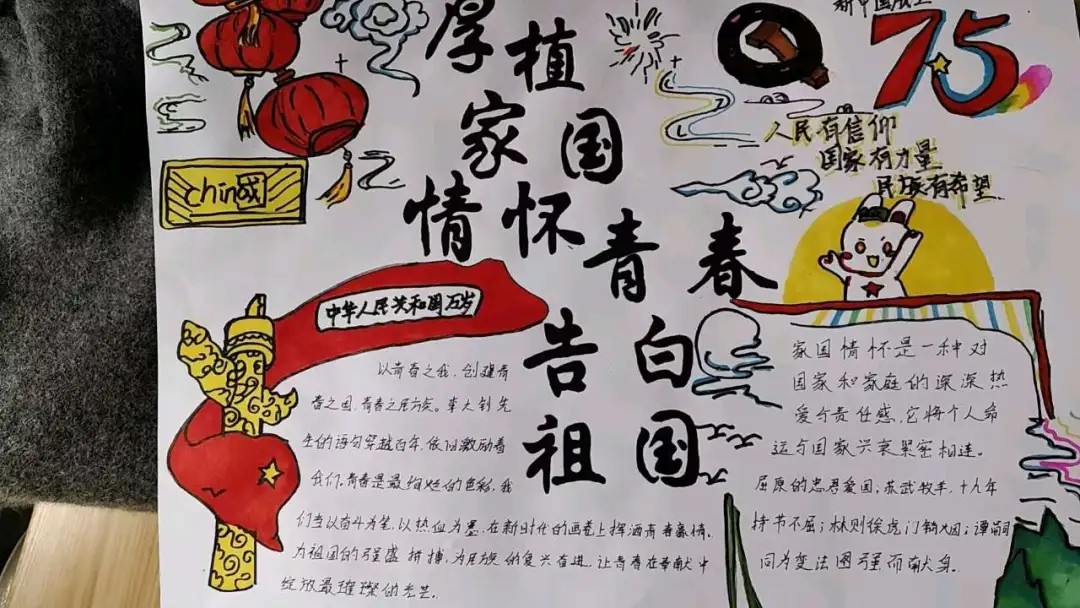 厚植
家国
情怀
青春
告白
祖国
75
人民有信仰
国家有力量
民族有希望
chin国
中华人民共和国万岁
以青春之我，创建青
春之国，青春之民族。李大钊先
生的语句穿越百年，依旧激励着
我们，青春是最绚烂的色彩，我
们当以奋斗为笔，以热血为墨，在新时代的画卷上挥洒青春豪情，
为祖国的强盛拼搏，为民族的复兴奋进，让青春在奉献中
绽放最璀璨的光芒。
家国情怀是一种对
国家和家庭的深深热
爱与责任感，它将个人命
运与国家兴衰紧密相连。
屈原的忠君爱国，苏武牧羊，十九年
持节不屈；林则徐虎门销烟；谭嗣
同为变法图强而献身。